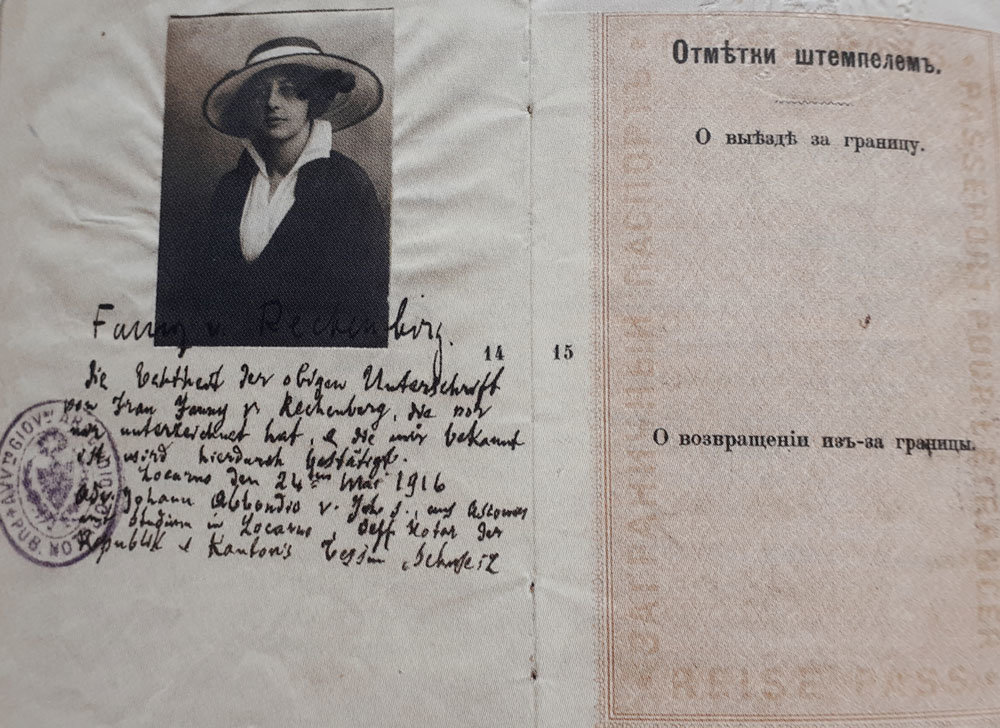 Fanny v. Rechenberg.
14
Die Echtheit der obigen Unterschrift
von Frau Fanny v. Rechenberg, die vor
mir unterzeichnet hat, & die mir bekannt
ist wird hierdurch bestätigt.
Locarno den 24ten Mai 1916
Adv. Johann Abbondio v. Joh s., aus Ascona
mit Studium in Locarno Oeff Notar der
Republik & Kantons Tessin, Schweiz
15
Отмѣтки штемпелемъ.
О выѣздѣ за границу.
О возвращеніи изъ-за границы.
ЗАГРАНИЧНЫЙ ПАСПОРТЪ
PASSEPORT POUR L'ETRANGER
REISE PASS